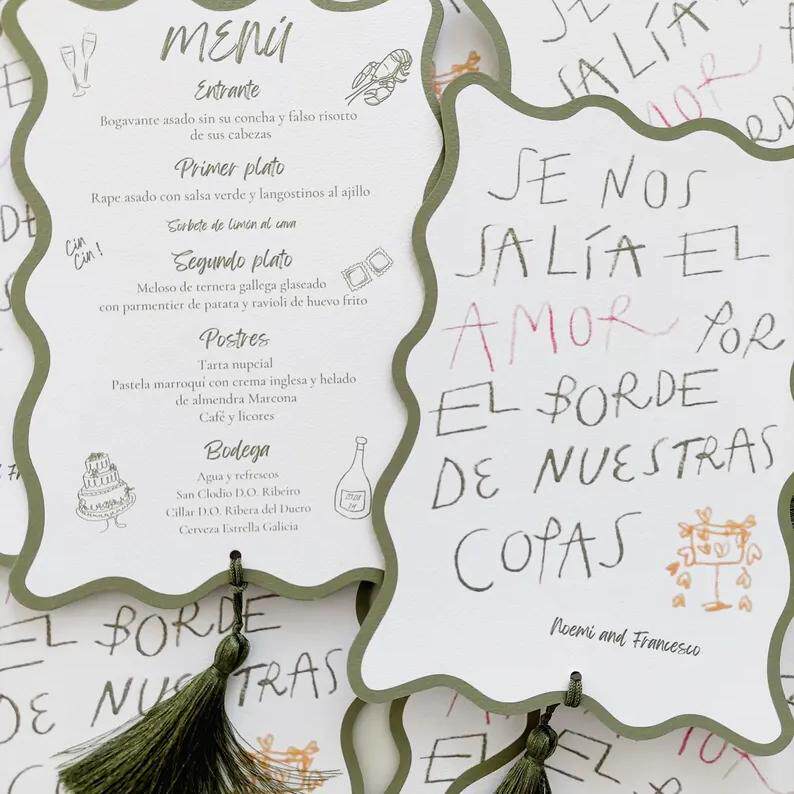 MENÚ
Entrante
Bogavante asado sin su concha y falso risotto
de sus cabezas
Primer plato
Rape asado con salsa verde y langostinos al ajillo
Sorbete de limón al cava
Cin
Cin!
Segundo plato
Meloso de ternera gallega glaseado
con parmentier de patata y ravioli de huevo frito
Postres
Tarta nupcial
Pastela marroquí con crema inglesa y helado
de almendra Marcona
Café y licores
Bodega
Agua y refrescos
San Clodio D.O. Ribeiro
Cillar D.O. Ribera del Duero
Cerveza Estrella Galicia
SE NOS
SALÍA EL
AMOR POR
EL BORDE
DE NUESTRAS
COPAS
Noemi and Francesco
SALÍA
EL BORDE
DE NUESTRAS
EL